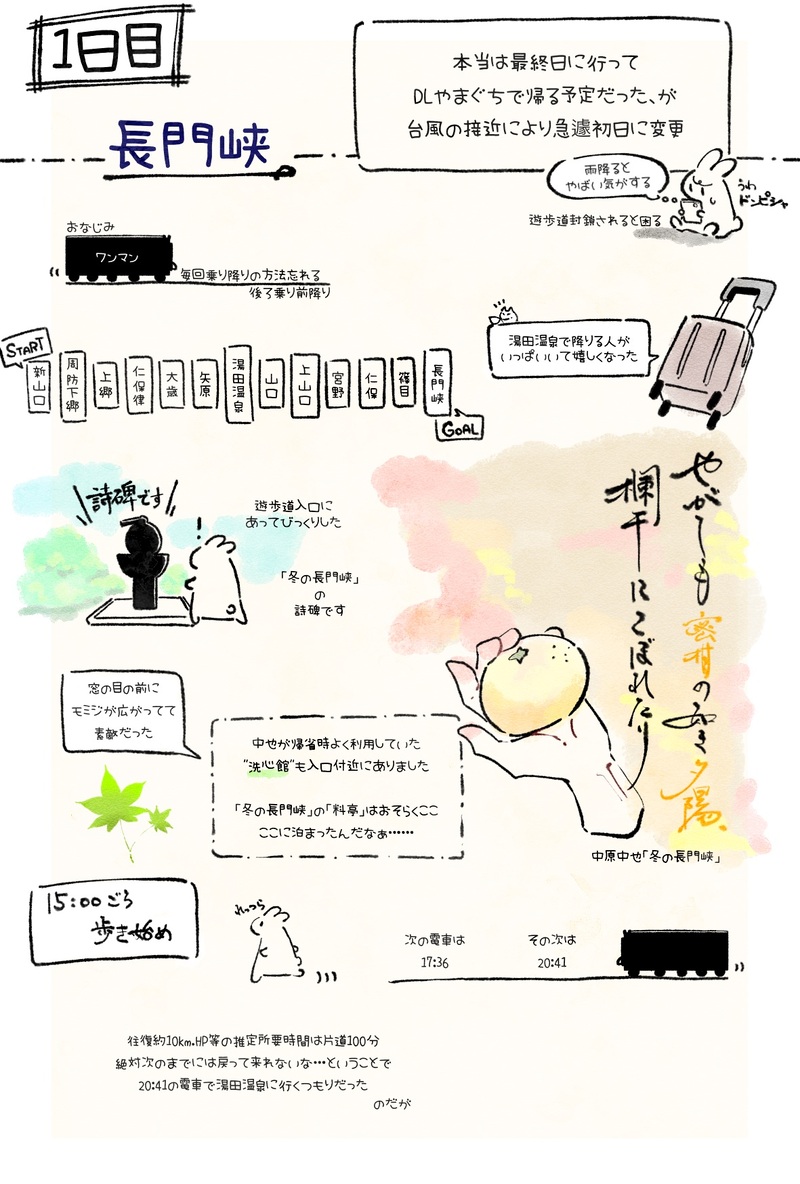 1日目
本当は最終日に行って
DLやまぐちで帰る予定だった、が
台風の接近により急遽初日に変更
長門峡
雨降ると
やばい気がする
うわ
ドンピシャ
遊歩道封鎖されると困る
おなじみ
ワンマン
毎回乗り降りの方法忘れる
後ろ乗り前降り
湯田温泉で降りる人が
いっぱいいて嬉しくなった
START
新山口
周防下郷
上郷
仁保津
大歳
矢原
湯田温泉
山口
上山口
宮野
仁保
篠目
長門峡
GOAL
詩碑です
遊歩道入口に
あってびっくりした
「冬の長門峡」
の
詩碑です
やがても蜜柑の如き夕陽、
欄干にこぼれたり
中原中也「冬の長門峡」
窓の目の前に
モミジが広がってて
素敵だった
中也が帰省時よく利用していた
"洗心館"も入口付近にありました
「冬の長門峡」の「料亭」はおそらくここ
ここに泊まったんだなぁ……
15:00ごろ
歩き始め
れっつら
次の電車は
17:36
その次は
20:41
往復約10km。HP等の推定所要時間は片道100分
絶対次のまでには戻って来れないな…ということで
20:41の電車で湯田温泉に行くつもりだった
のだが